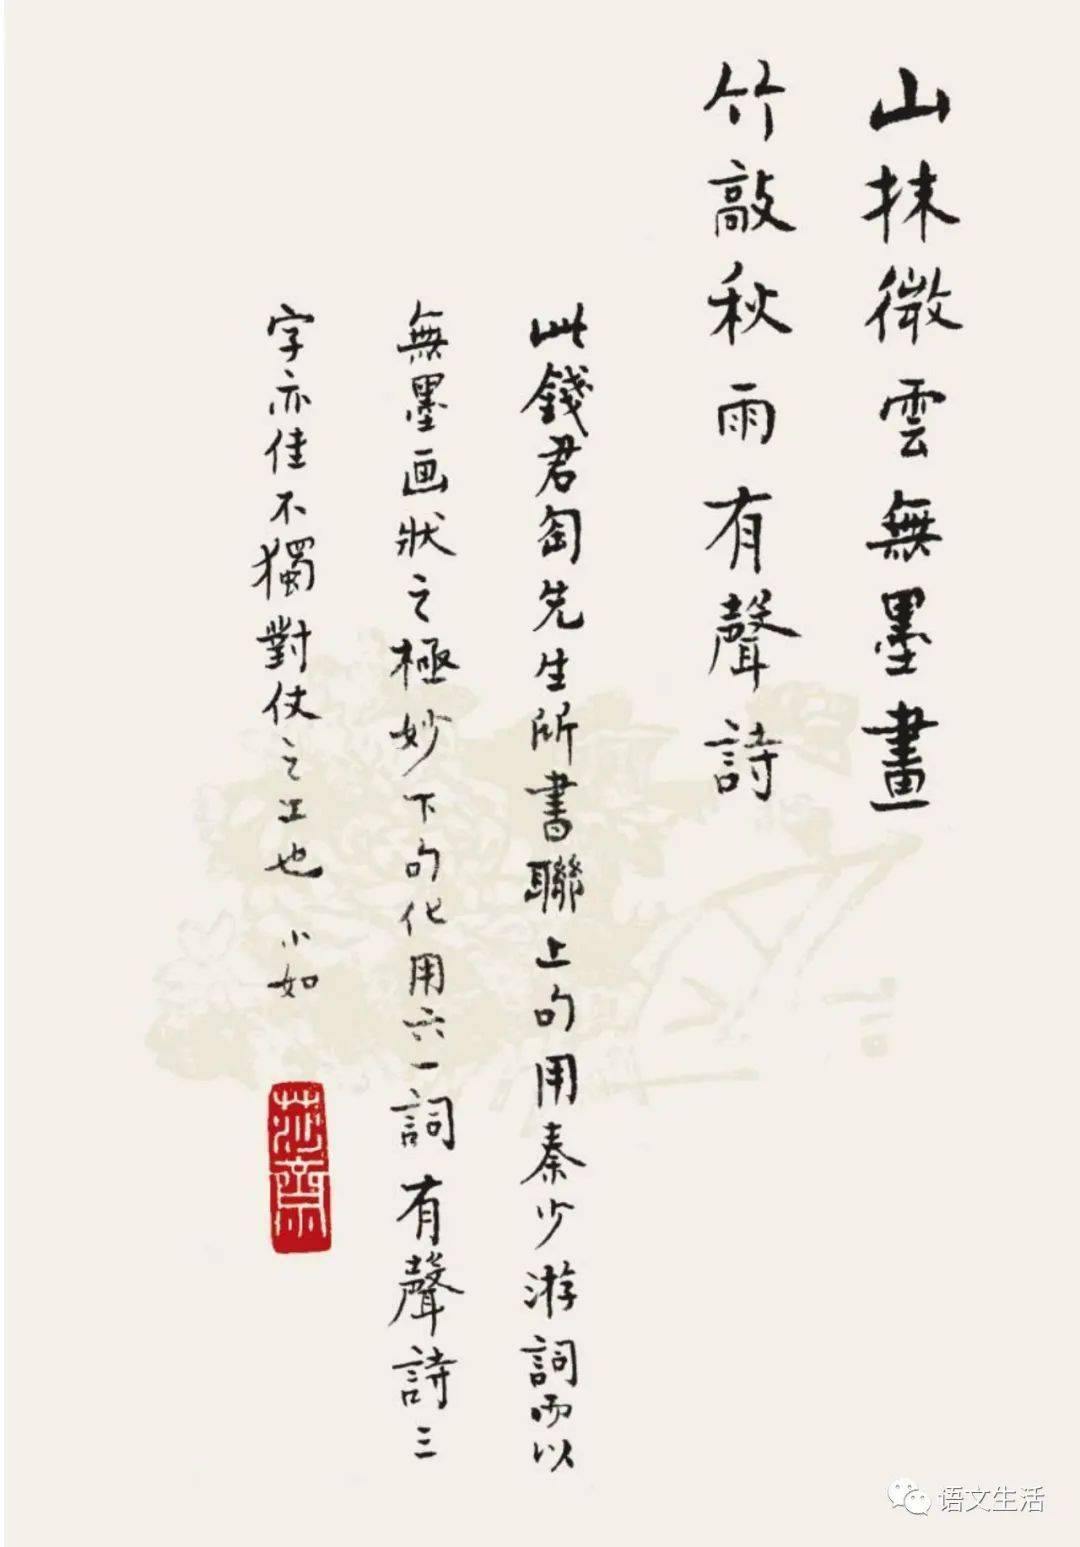 山抹微雲無墨畫
竹敲秋雨有聲詩
此錢君匋先生所書聯上句用秦少游詞而以
無墨画狀之極妙下句化用六一詞有聲詩三
字亦佳不獨對仗之工也 小如
莎齋
语文生活